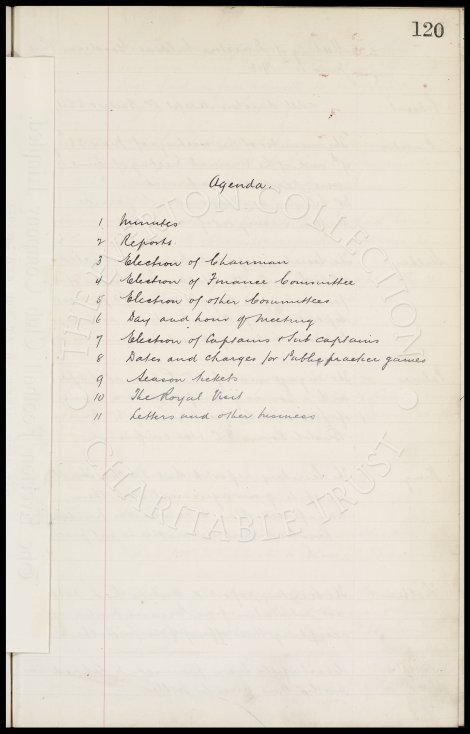 120
Agenda.
1 Minutes
2 Reports
3 Election of Chairman
4 Election of Finance Committee
5 Election of other Committees
6 Day and hour of Meeting
7 Election of Captains & Sub captains
8 Dates and charges for Public practice games
9 Season tickets
10 The Royal Visit
11 Letters and other business
THE EVERTON COLLECTION
CHARITABLE TRUST